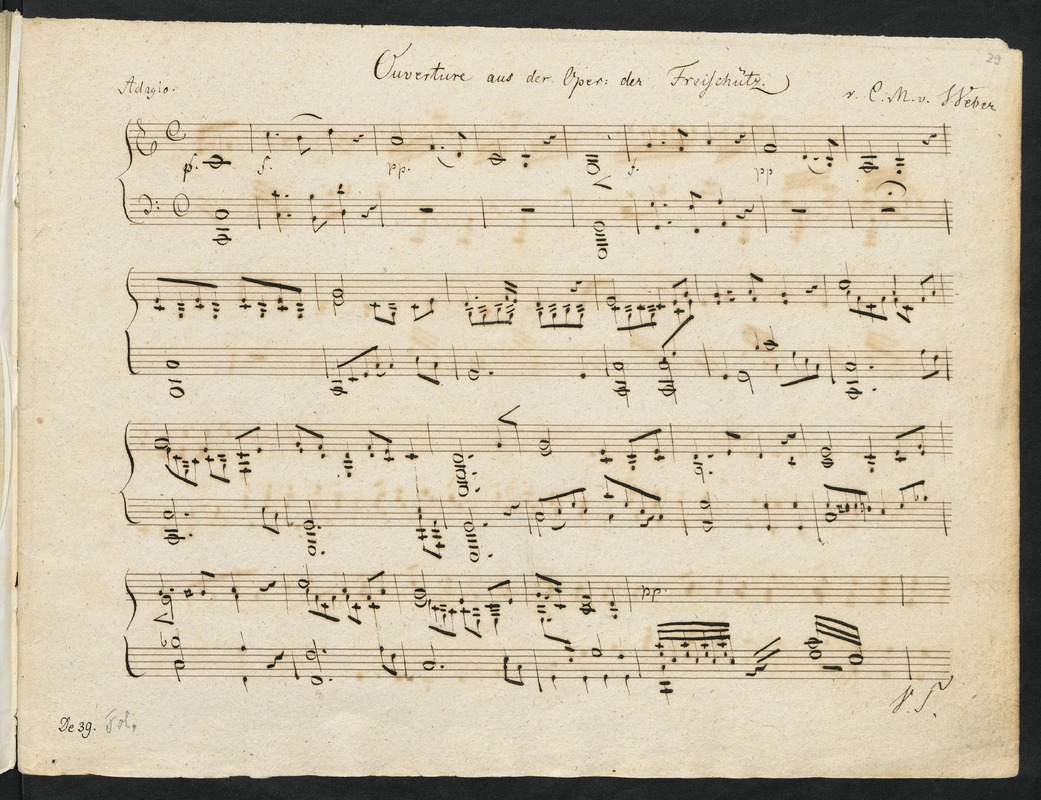 29
Ouverture aus der Oper: der Freischütz.
Adagio.
v. C. M. v. Weber
p. f. pp. f. pp
pp.
V. S.
De 39. Fol.